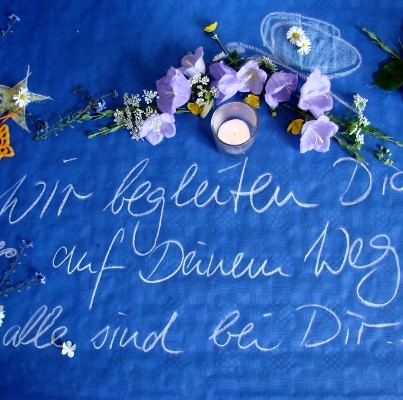 Wir begleiten Dic
auf Deinem Weg
alle sind bei Dir...